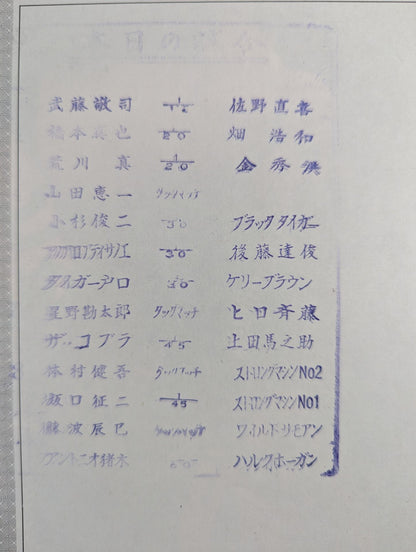 本日の試合
武藤敬司 佐野直喜
橋本真也 1/20 畑浩和
荒川真 1/20 金秀洪
山田恵一 タッグマッチ
小杉俊二 30 ブラックタイガー
1/30 後藤達俊
タイガー 30 ケリーブラウン
星野勘太郎 タッグマッチ ヒロ斉藤
ザ・コブラ 45 上田馬之助
木村健吾 タッグマッチ ストロングマシンNo2
坂口征二 1/45 ストロングマシンNo1
藤波辰巳 タッグマッチ ワイルドサモアン
アントニオ猪木 60 ハルクホーガン